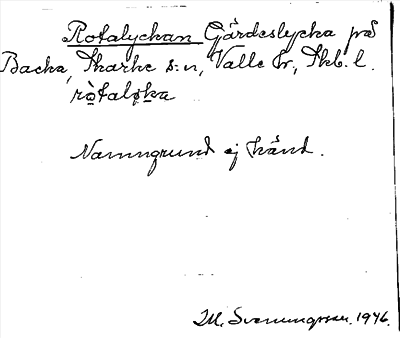 Rotalyckan Gärdeslycka på
Backa, Skarke s:n, Valle hr, Skb. l.
ròtaløka
Namngrund ej känd.
M. Svenungsson. 1946.